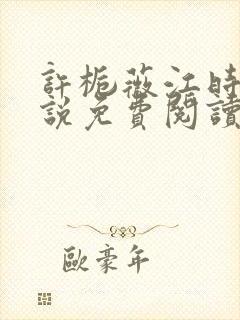 許梔薇江時
說免費閱讀
歐豪年